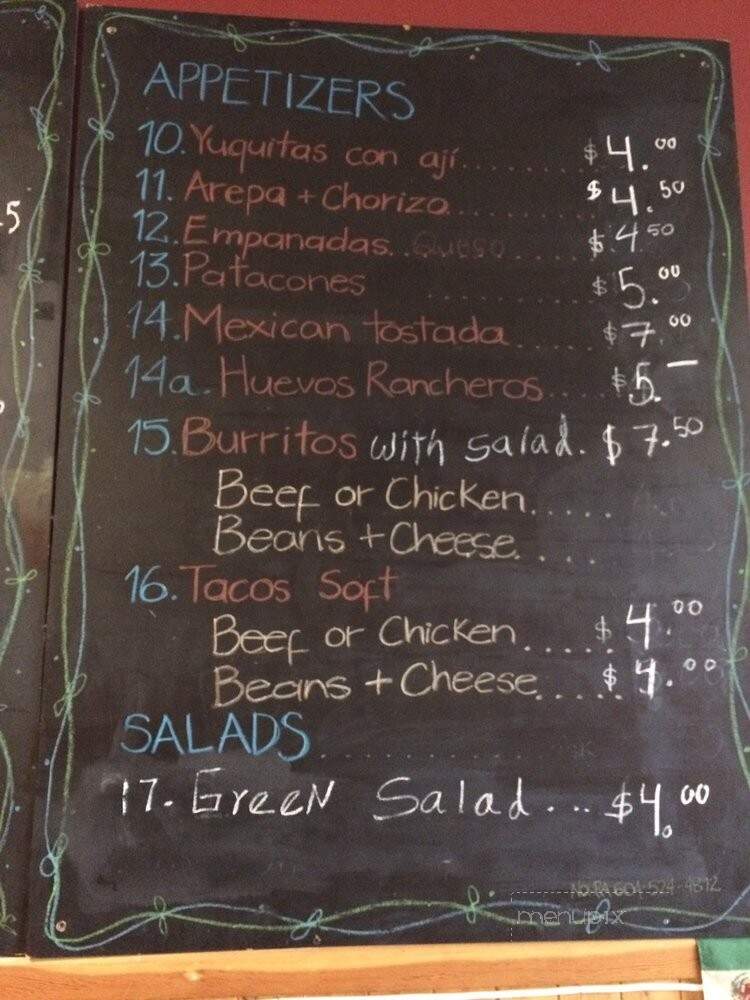 APPETIZERS
10. Yuquitas con ají....... $4.00
11. Arepa + Chorizo.......... $4.50
12. Empanadas.. Queso.... $4.50
13. Patacones ........... $5.00
14. Mexican tostada...... $7.00
14a. Huevos Rancheros.... $5.—
15. Burritos with salad. $7.50
Beef or Chicken.....
Beans + Cheese....
16. Tacos Soft
Beef or Chicken..... $4.00
Beans + Cheese..... $4.00
SALADS..............
17. GreeN Salad... $4.00
604-524-4812
menupix
5